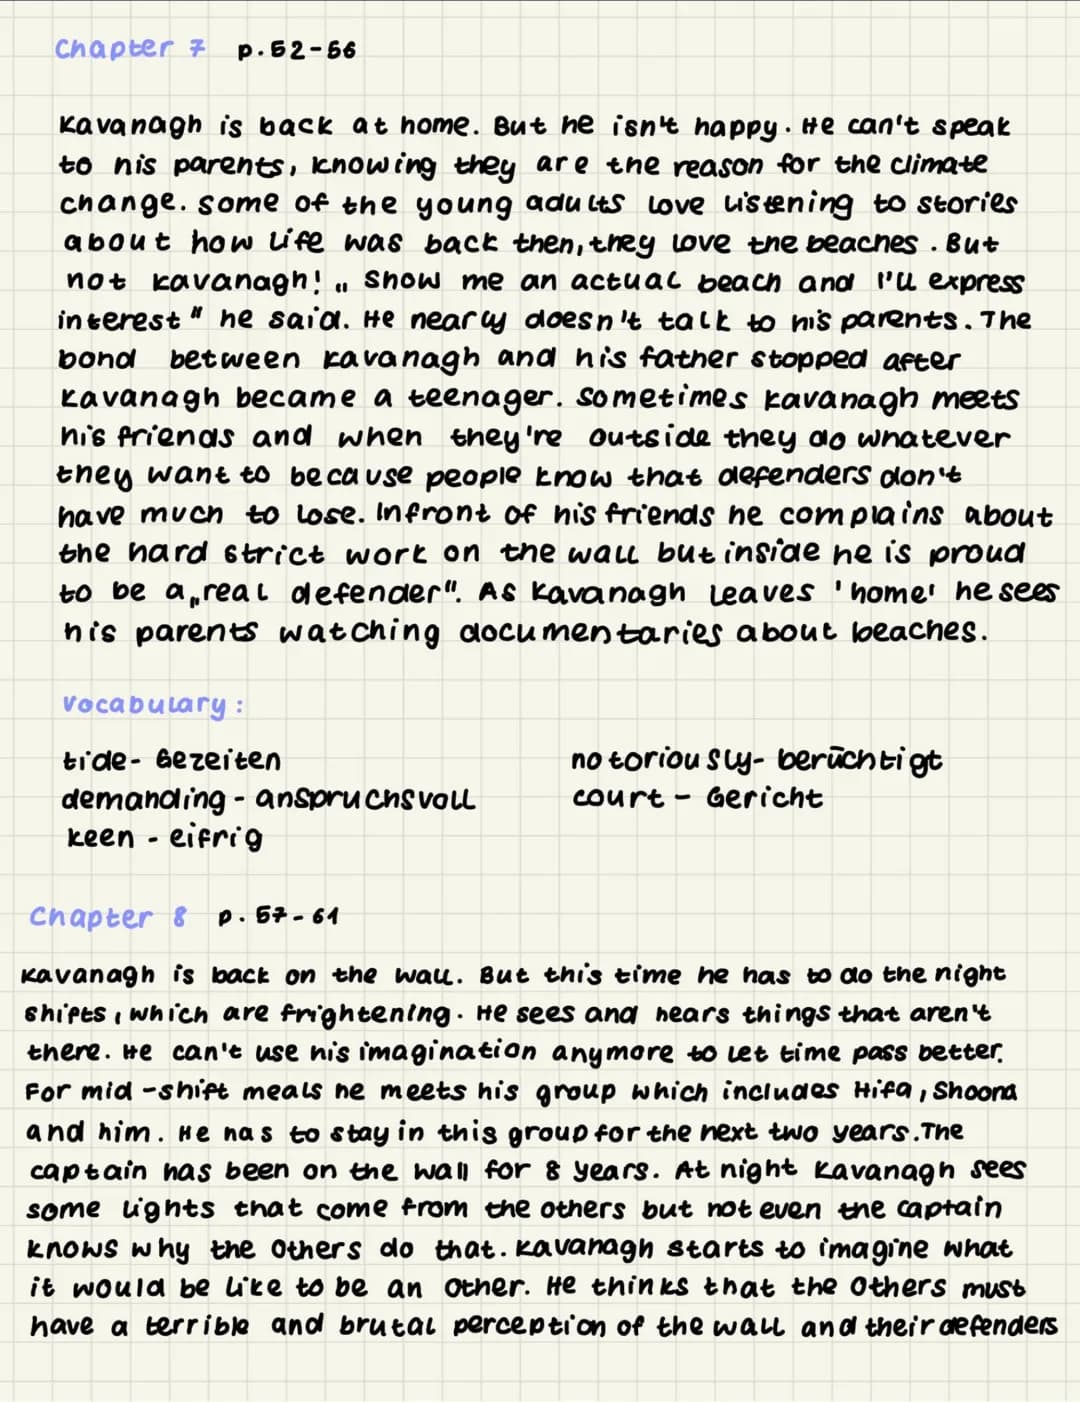 Chapter 7 p.52-56
Kavanagh is back at home. But he isn't happy. He can't speak
to his parents, knowing they are the reason for the climate
change. some of the young adults love listening to stories
about how life was back then, they love the beaches. But
not Kavanagh! „ Show me an actual beach and I'll express
interest" he said. He nearly doesn't talk to his parents. The
bond between Kavanagh and his father stopped after
Kavanagh became a teenager. Sometimes Kavanagh meets
his friends and when they're outside they do whatever
they want to because people know that defenders don't
have much to lose. Infront of his friends he complains about
the hard strict work on the wall but inside he is proud
to be a „real defender". As Kavanagh leaves 'home' he sees
his parents watching documentaries about beaches.
Vocabulary:
tide- Gezeiten notoriously- berüchtigt
demanding - anspruchsvoll court - Gericht
keen - eifrig
Chapter 8 p. 57-61
Kavanagh is back on the wall. But this time he has to do the night
shifts, which are frightening. He sees and hears things that aren't
there. He can't use his imagination anymore to let time pass better.
For mid-shift meals he meets his group which includes Hifa, Shoona
and him. He has to stay in this group for the next two years. The
captain has been on the wall for 8 years. At night Kavanagh sees
some lights that come from the others but not even the captain
knows why the Others do that. Kavanagh starts to imagine what
it would be like to be an Other. He thinks that the Others must
have a terrible and brutal perception of the wall and their defenders